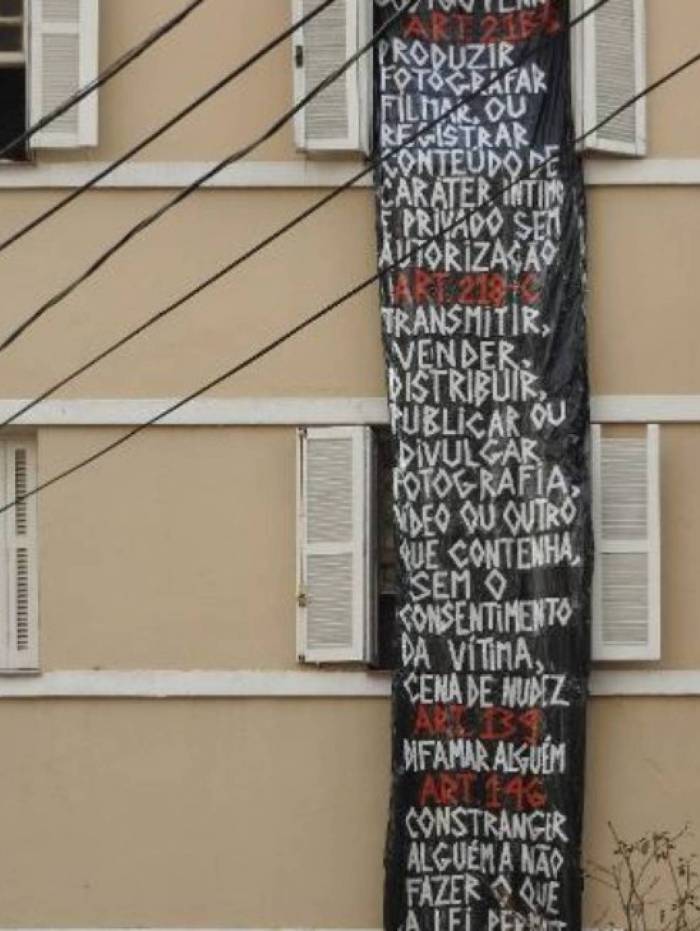 CÓDIGO PENAL
ART. 216-B
PRODUZIR
FOTOGRAFAR
FILMAR, OU
REGISTRAR
CONTEÚDO DE
CARÁTER ÍNTIMO
E PRIVADO SEM
AUTORIZAÇÃO
ART. 218-C
TRANSMITIR,
VENDER,
DISTRIBUIR,
PUBLICAR OU
DIVULGAR
FOTOGRAFIA,
VÍDEO OU OUTRO
QUE CONTENHA,
SEM O
CONSENTIMENTO
DA VÍTIMA,
CENA DE NUDEZ
ART. 139
DIFAMAR ALGUÉM
ART. 146
CONSTRANGER
ALGUÉM A NÃO
FAZER O QUE
A LEI PERMIT